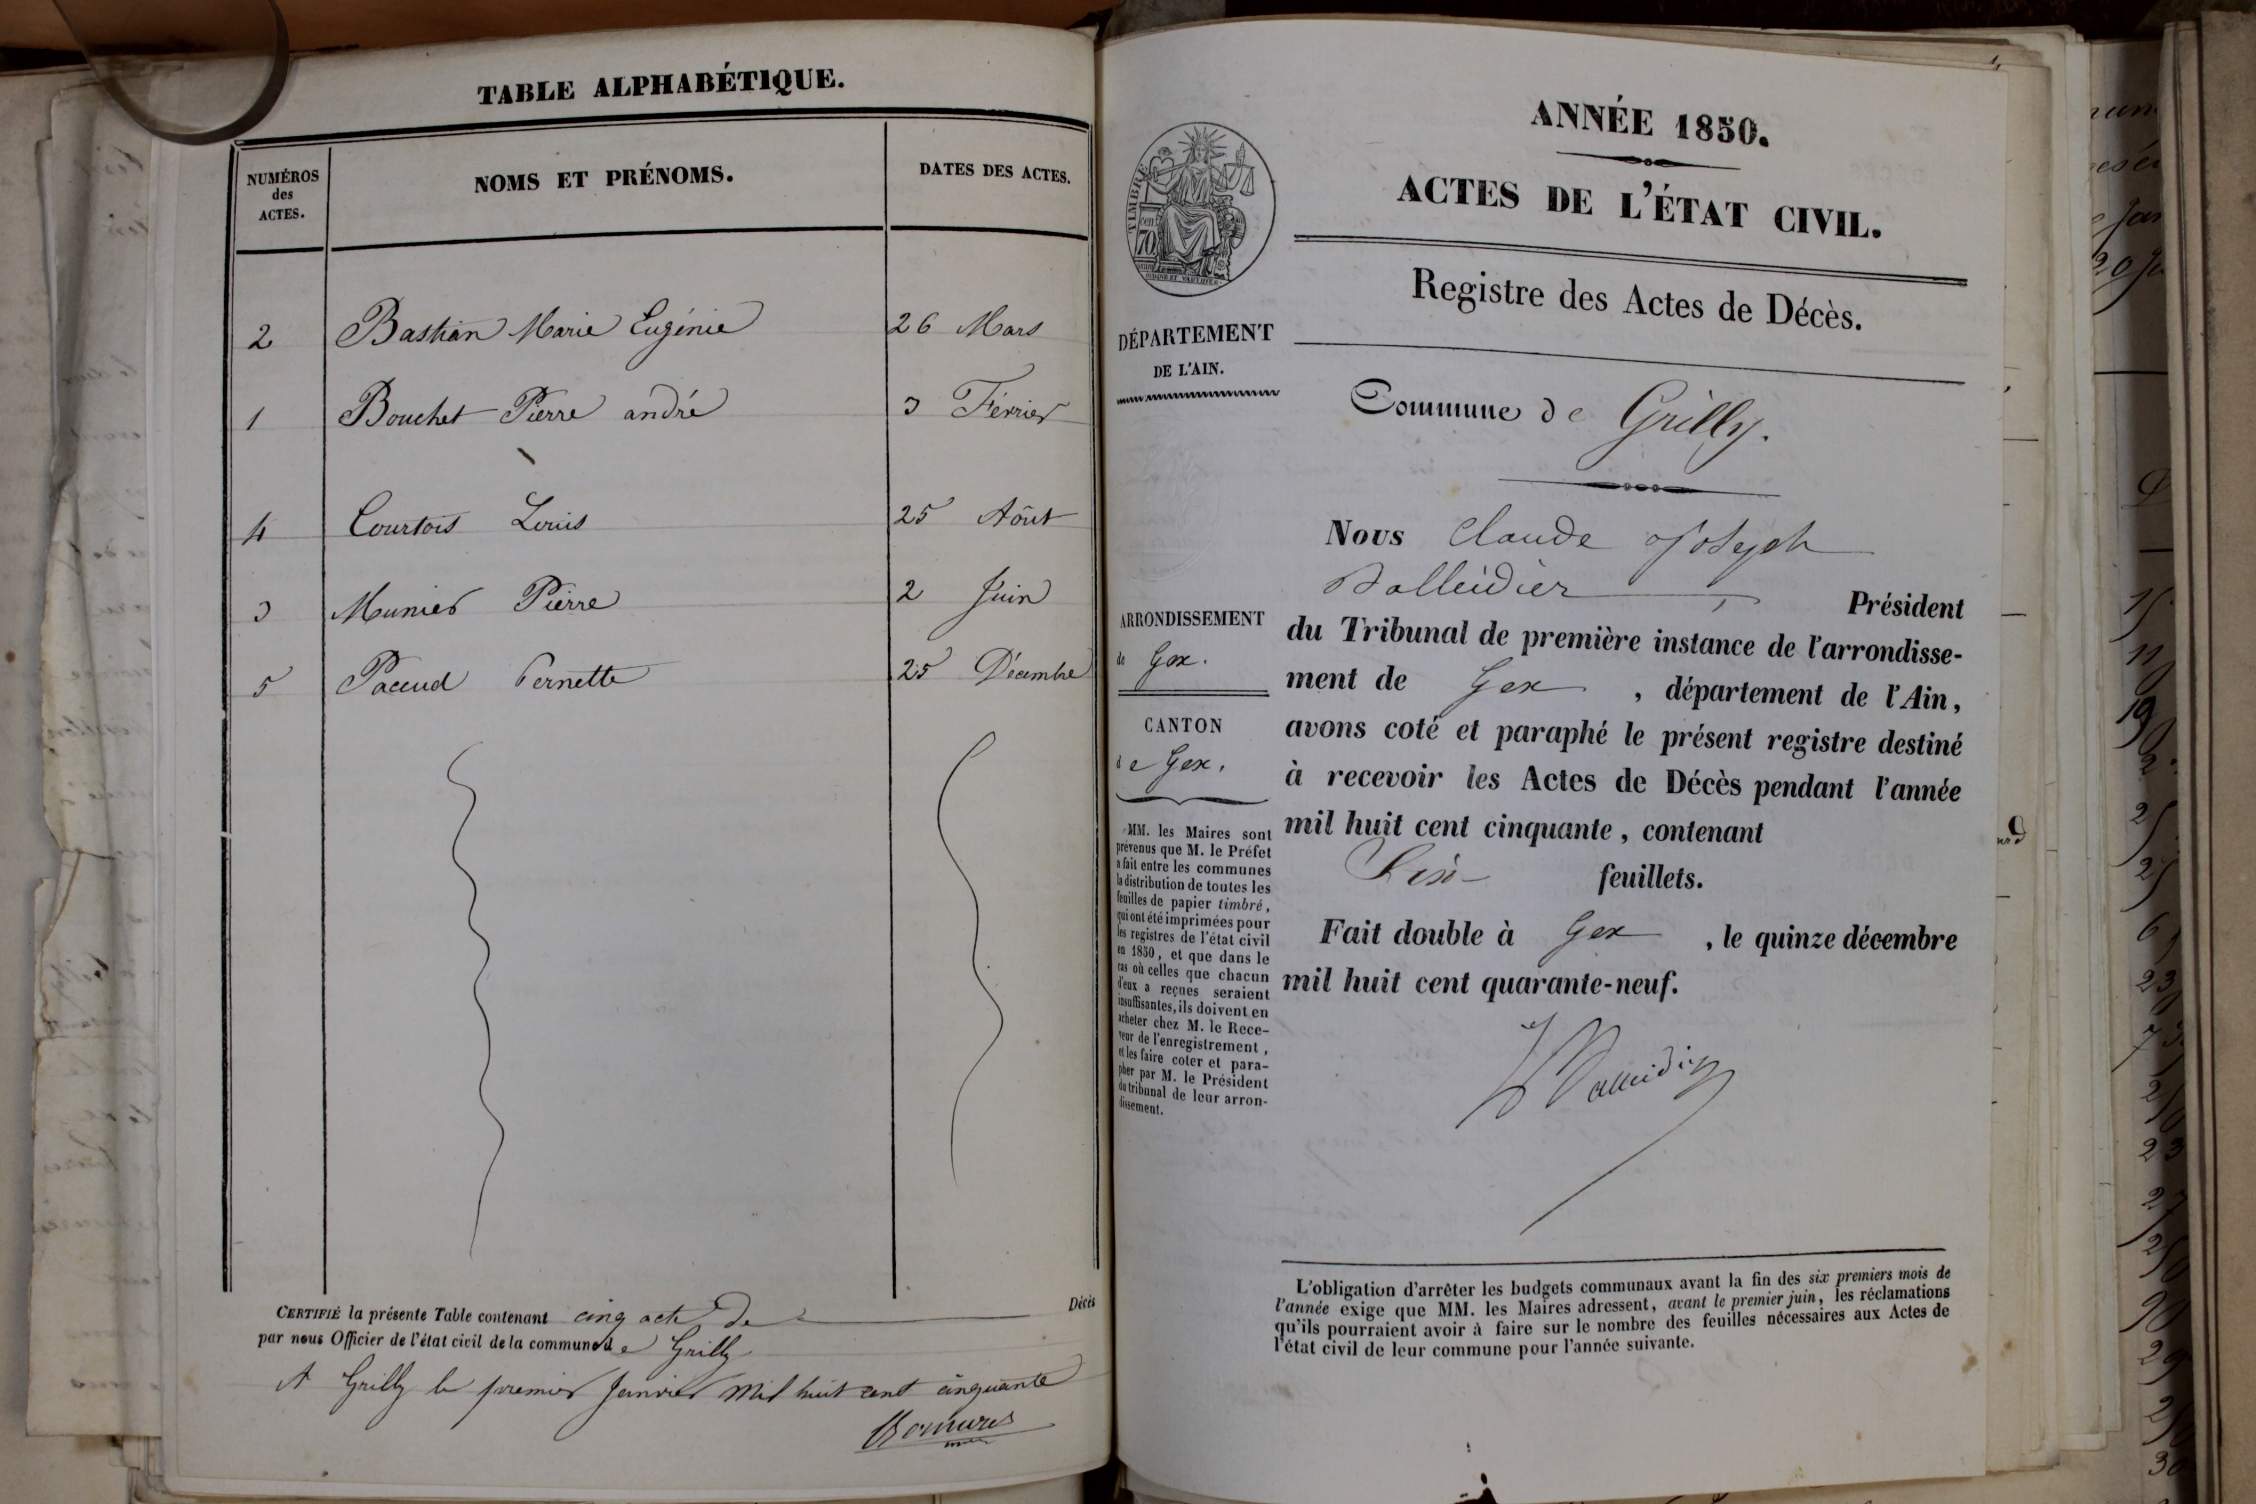 TABLE ALPHABÉTIQUE.
NUMÉROS des ACTES.
NOMS ET PRÉNOMS.
DATES DES ACTES.
2 Bastian Marie Eugénie 26 Mars
1 Bouchet Pierre andré 3 Février
4 Courtois Louis 25 Aôut
3 Munier Pierre 2 Juin
5 Paccud Pernette 25 Décembre
CERTIFIÉ la présente Table contenant cinq acte de Décès
par nous Officier de l'état civil de la commune de Grilly
A Grilly le premier Janvier Mil huit cent cinquante
ANNÉE 1850.
ACTES DE L'ÉTAT CIVIL.
Registre des Actes de Décès.
TIMBRE
70
DÉPARTEMENT
DE L'AIN.
Commune de Grilly.
Nous Claude Joseph
Balleidier Président
du Tribunal de première instance de l'arrondisse-
ment de Gex , département de l'Ain,
avons coté et paraphé le présent registre destiné
à recevoir les Actes de Décès pendant l'année
mil huit cent cinquante, contenant
Six feuillets.
Fait double à Gex , le quinze décembre
mil huit cent quarante-neuf.
Balleidier
ARRONDISSEMENT
de Gex.
CANTON
de Gex.
MM. les Maires sont
prévenus que M. le Préfet
a fait entre les communes
la distribution de toutes les
feuilles de papier timbré,
qui ont été imprimées pour
les registres de l'état civil
en 1850, et que dans le
cas où celles que chacun
d'eux a reçues seraient
insuffisantes, ils doivent en
acheter chez M. le Rece-
veur de l'enregistrement,
et les faire coter et para-
pher par M. le Président
du tribunal de leur arron-
dissement.
L'obligation d'arrêter les budgets communaux avant la fin des six premiers mois de
l'année exige que MM. les Maires adressent, avant le premier juin, les réclamations
qu'ils pourraient avoir à faire sur le nombre des feuilles nécessaires aux Actes de
l'état civil de leur commune pour l'année suivante.